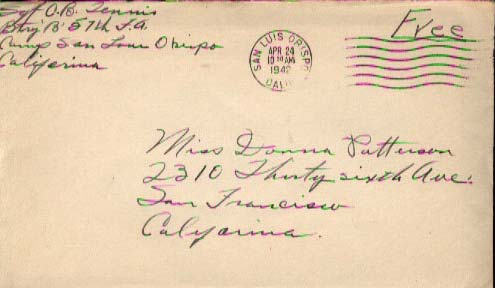 Sgt O.B. Tennis
Btry "B" 57th F.A.
Camp San Luis Obispo
California
SAN LUIS OBISPO
APR 24
10 30 AM
1942
CALIF.
Free
Miss Donna Patterson
2310 Thirty sixth Ave.
San Francisco
California.